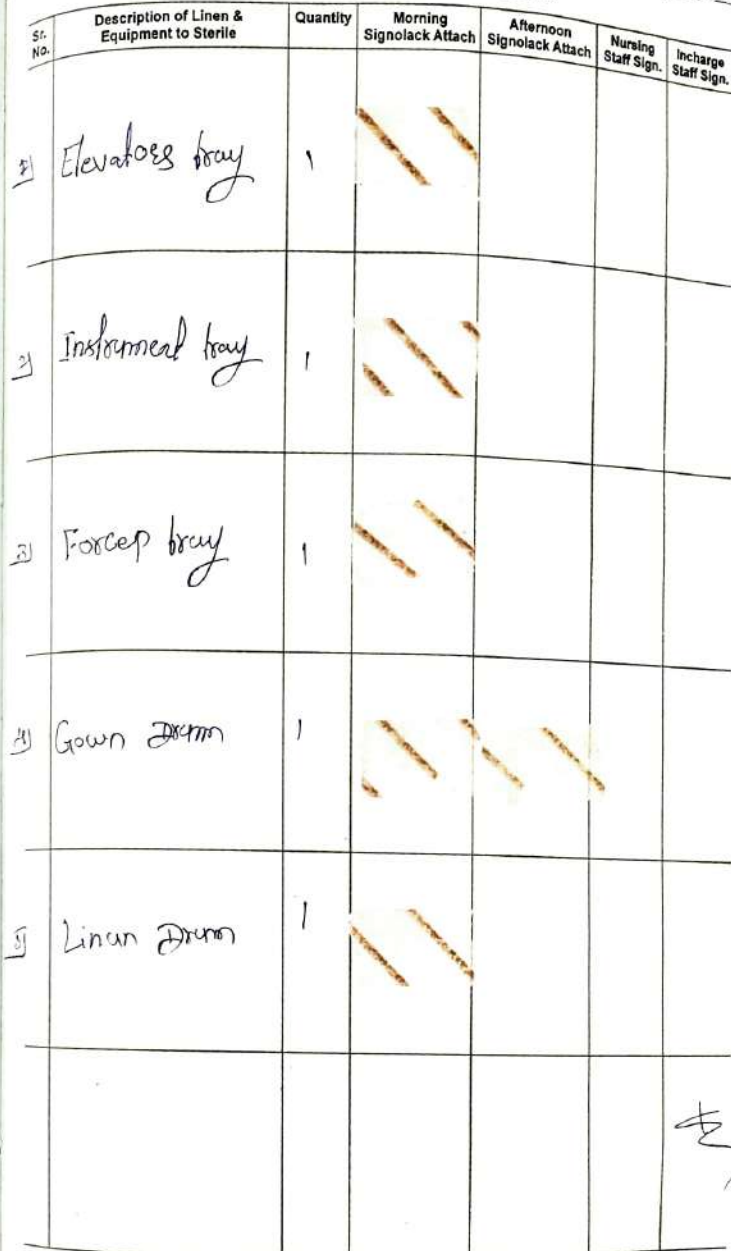 Sr. No. Description of Linen & Equipment to Sterile Quantity Morning Signolack Attach Afternoon Signolack Attach Nursing Staff Sign. Incharge Staff Sign.
1) Elevatoss tray 1
2) Instrument tray 1
3) Forcep tray 1
4) Gown Drum 1
5) Linun Drum 1